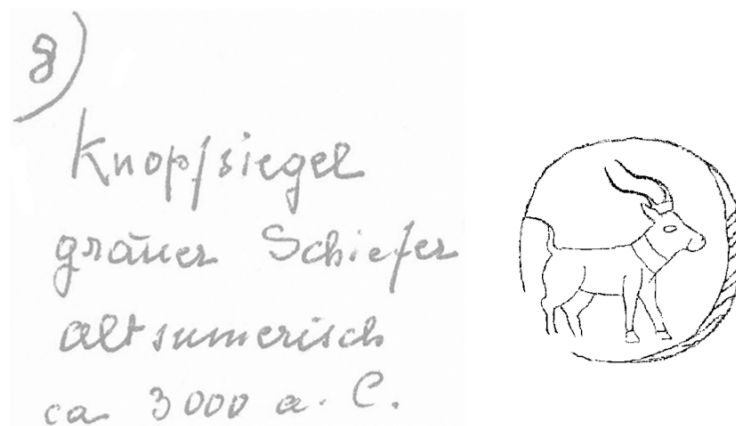 8)
Knopfsiegel
grauer Schiefer
altsumerisch
ca 3000 a. C.